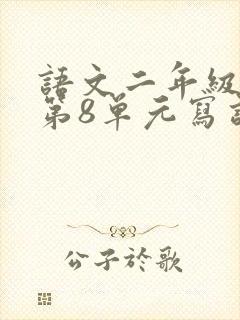 語文二年級
第8單元寫
公子於歌